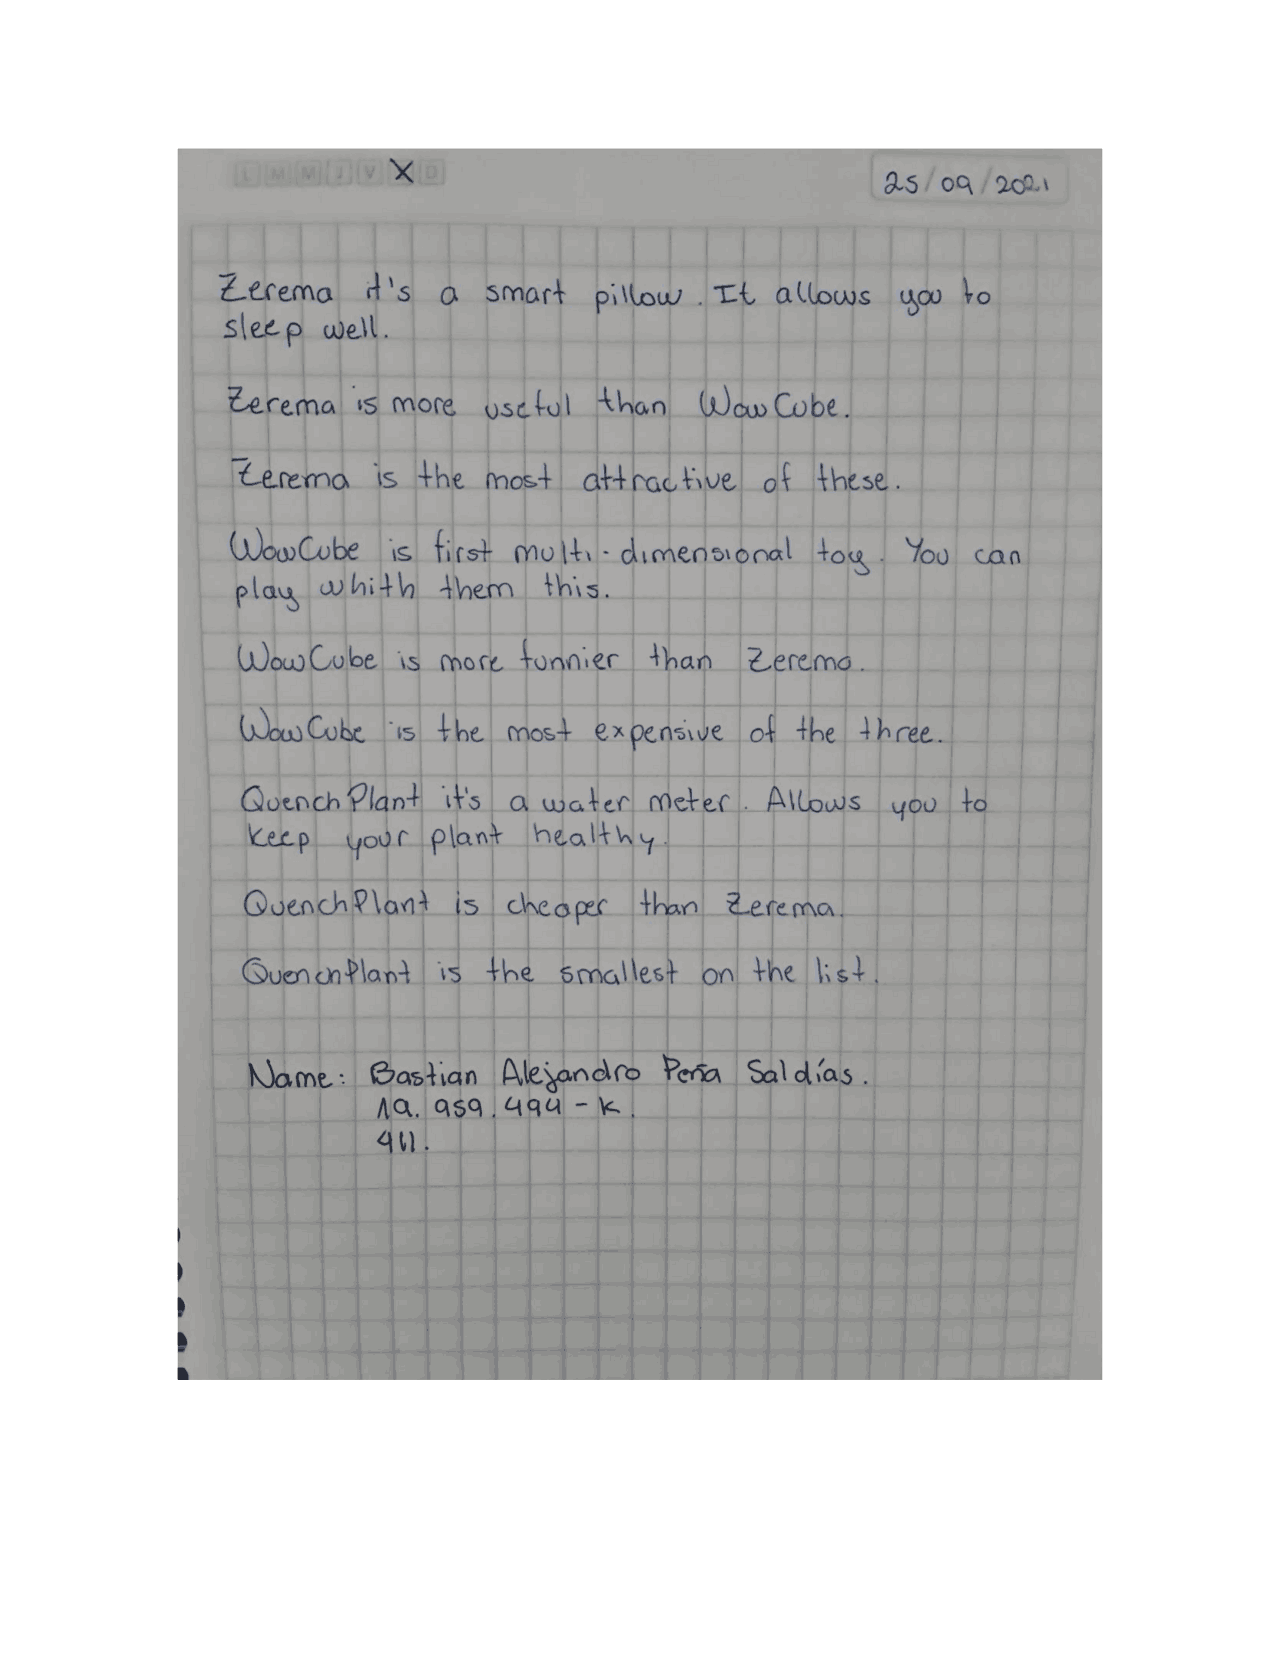 L M M J V X D
25/09/2021
Zerema it's a smart pillow. It allows you to
sleep well.
Zerema is more useful than WowCube.
Zerema is the most attractive of these.
WowCube is first multi-dimensional toy. You can
play whith them this.
WowCube is more funnier than Zerema.
WowCube is the most expensive of the three.
QuenchPlant it's a water meter. Allows you to
keep your plant healthy.
QuenchPlant is cheaper than Zerema.
QuenchPlant is the smallest on the list.
Name: Bastian Alejandro Peña Saldías.
19.959.494-K.
411.